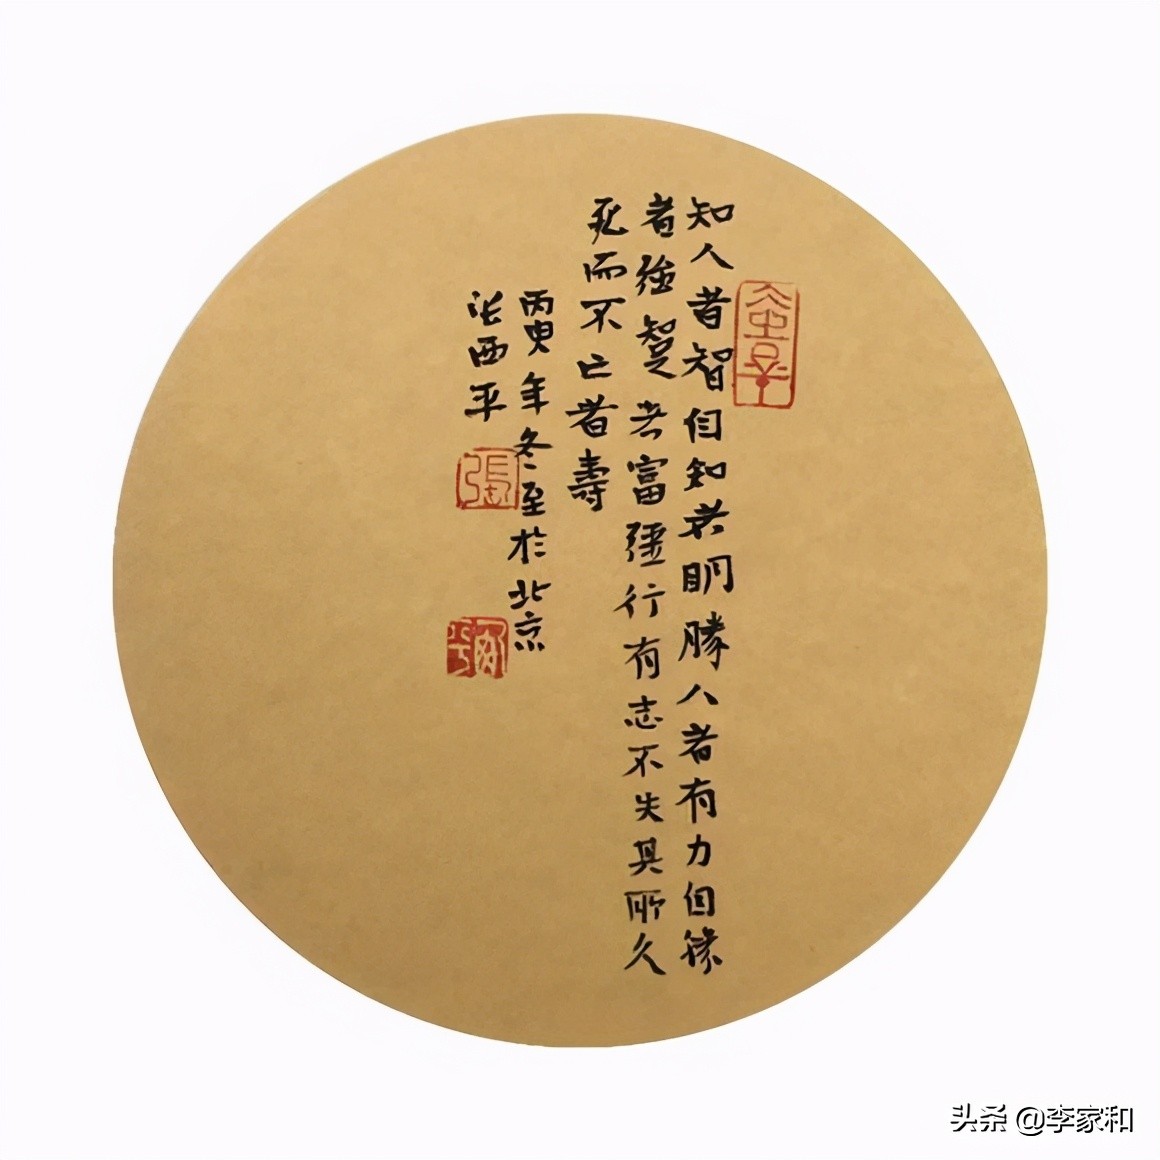 知人者智自知者明勝人者有力自勝
者強知足者富彊行有志不失其所久
死而不亡者壽
丙申年冬至於北京
张西平
張
头条 @李家和